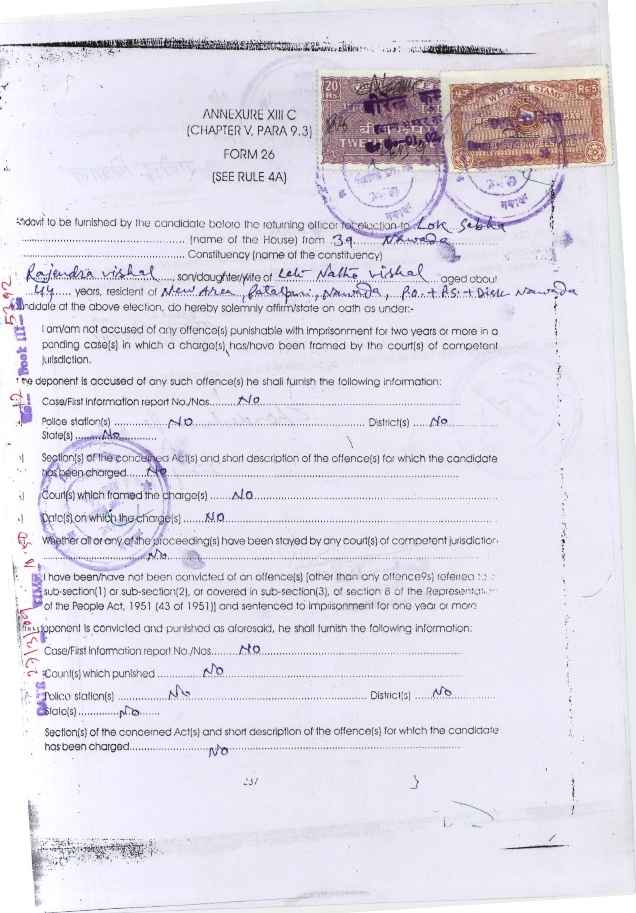 ANNEXURE XIII C
(CHAPTER V, PARA 9.3)
FORM 26
(SEE RULE 4A)
20
Rs
WELFARE STAMP
Rs 5
to be furnished by the candidate before the returning officer for election to Lok Sabha
(name of the House) from 39. Nawada
Constituency (name of the constituency)
Rajendra vishal son/daughter/wife of Late Natho vishal aged about
44 years, resident of New Area, Patalpuri, Nawada, P.O. + P.S. + Dist- Nawada
at the above election, do hereby solemnly affirm/state on oath as under:-
I am/am not accused of any offence(s) punishable with imprisonment for two years or more in a
pending case(s) in which a charge(s) has/have been framed by the court(s) of competent
jurisdiction.
deponent is accused of any such offence(s) he shall furnish the following information:
Case/First Information report No./Nos. NO
Police station(s) NO District(s) No
State(s) No
Section(s) of the concerned Act(s) and short description of the offence(s) for which the candidate
has been charged NO
Court(s) which framed the charge(s) NO
Date(s) on which the charge(s) NO
Whether all or any of the proceeding(s) have been stayed by any court(s) of competent jurisdiction
No
I have been/have not been convicted of an offence(s) [other than any offence9s) referred to
sub-section(1) or sub-section(2), or covered in sub-section(3), of section 8 of the Representation
of the People Act, 1951 (43 of 1951)] and sentenced to imprisonment for one year or more
deponent is convicted and punished as aforesaid, he shall furnish the following information:
Case/First Information report No./Nos. NO
Court(s) which punished NO
Police station(s) No District(s) No
State(s) NO
Section(s) of the concerned Act(s) and short description of the offence(s) for which the candidate
has been charged NO
Book III
TIME
DATE 27/3/2009